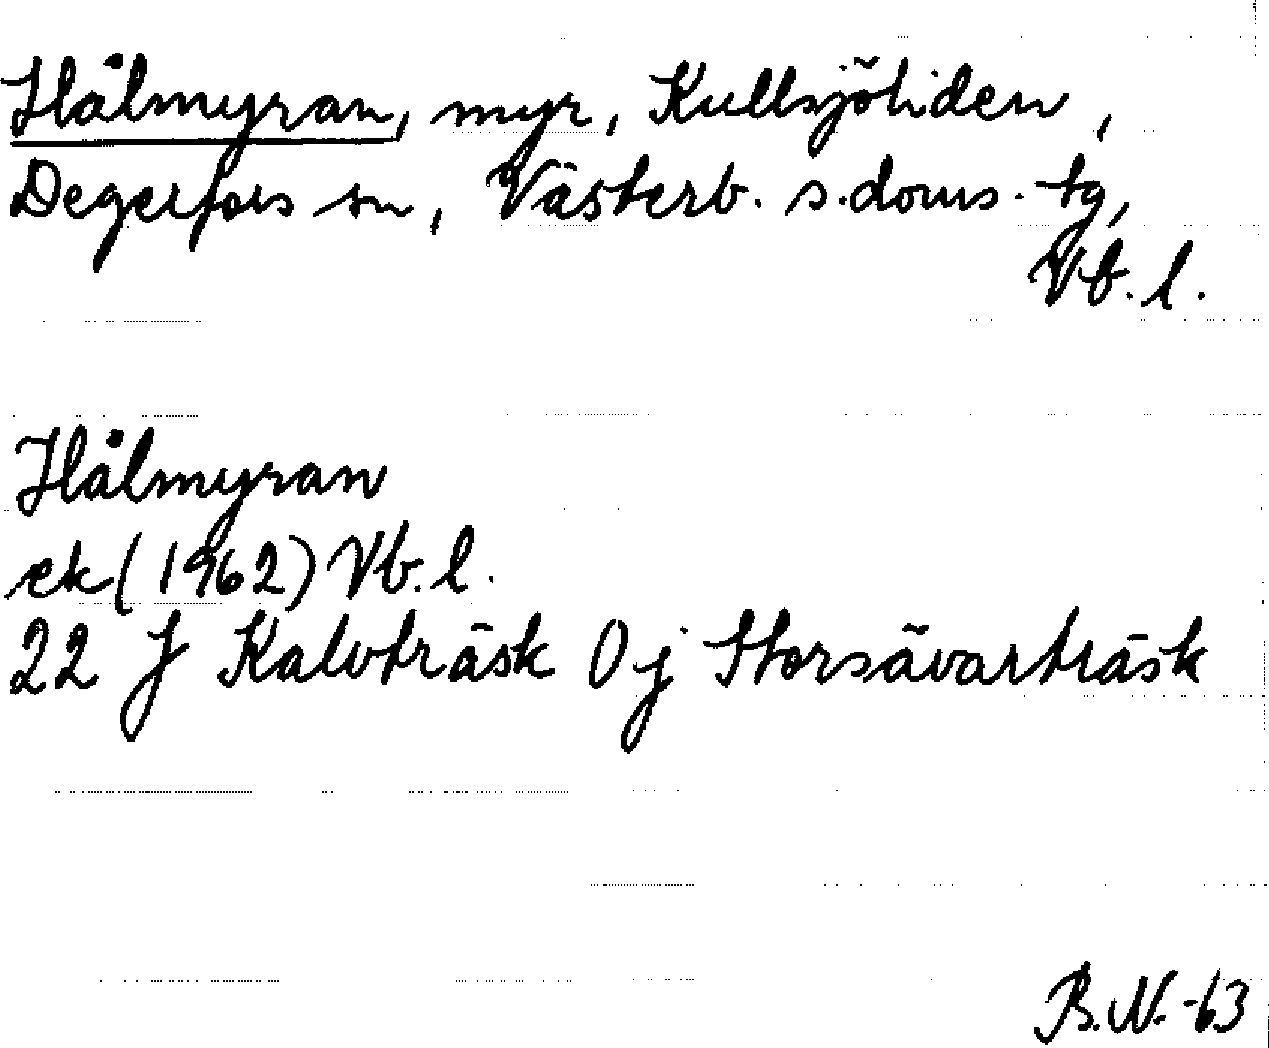 Hålmyran, myr, Kullsjöliden,
Degerfors sn, Västerb. s. doms. tg,
Vb. l.
Hålmyran
ek (1962) Vb. l.
22 J Kalvträsk 0 j Storsävarträsk
B. N. -63